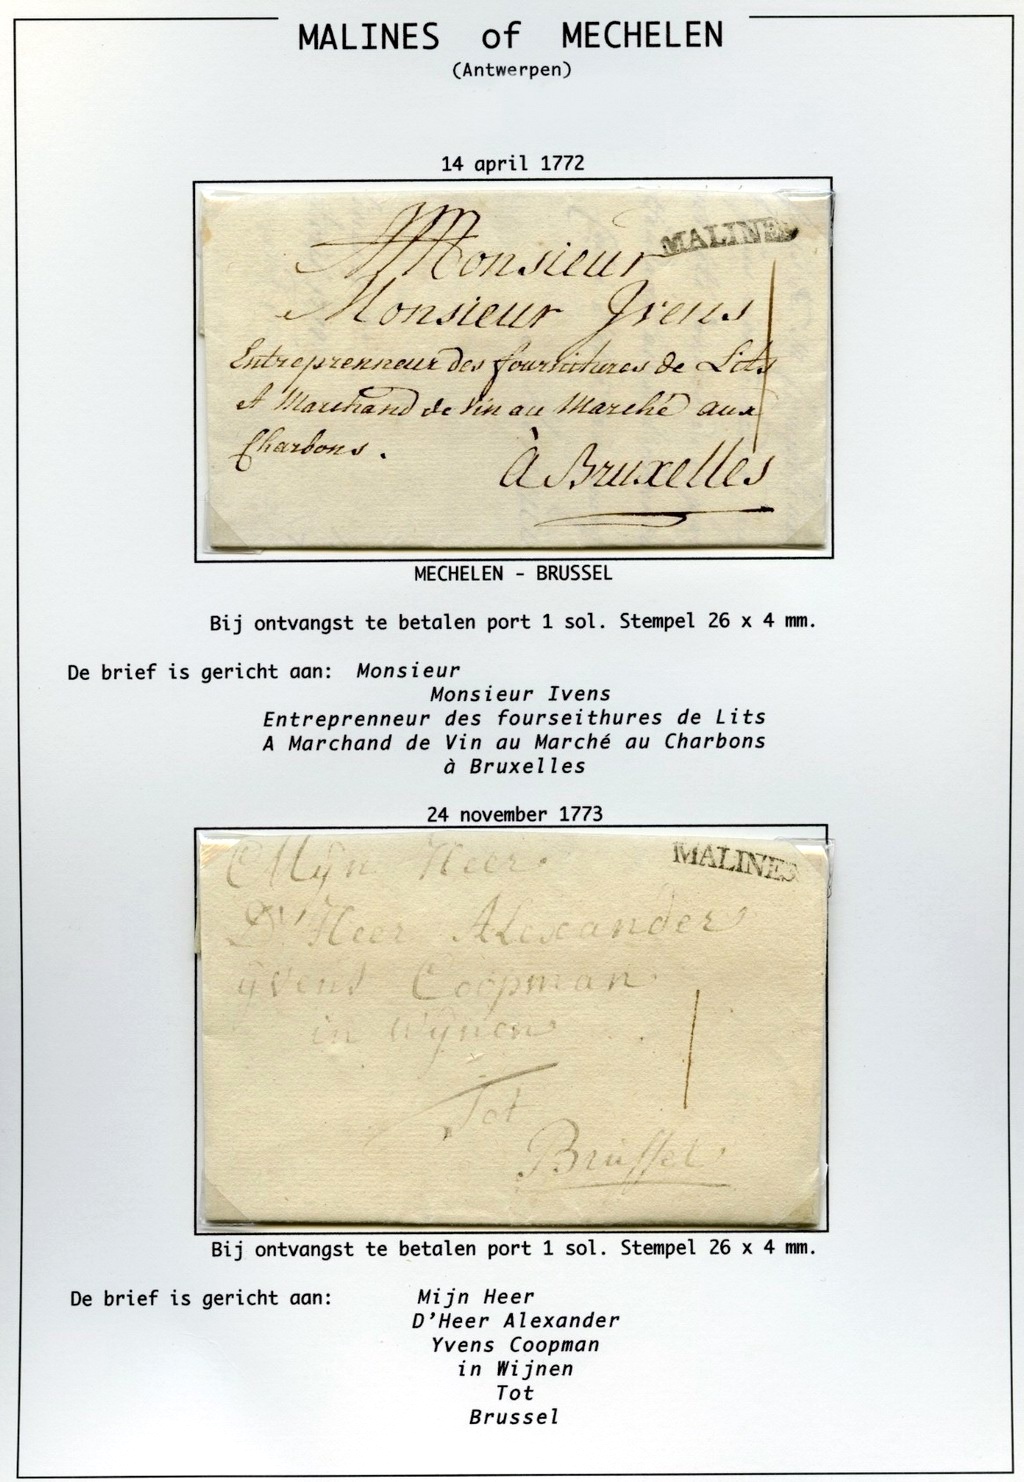 MALINES of MECHELEN
(Antwerpen)
14 april 1772
MALINES
A Monsieur
Monsieur Ivens
Entreprenneur des fournitures de Lits
et Marchand de vin au Marché aux
Charbons.
à Bruxelles
MECHELEN - BRUSSEL
Bij ontvangst te betalen port 1 sol. Stempel 26 x 4 mm.
De brief is gericht aan: Monsieur
Monsieur Ivens
Entreprenneur des fourseithures de Lits
A Marchand de Vin au Marché au Charbons
à Bruxelles
24 november 1773
MALINES
Mijn Heer
D'Heer Alexander
ijvens Coopman
in Wijnen
Tot
Brussel
Bij ontvangst te betalen port 1 sol. Stempel 26 x 4 mm.
De brief is gericht aan: Mijn Heer
D'Heer Alexander
Yvens Coopman
in Wijnen
Tot
Brussel